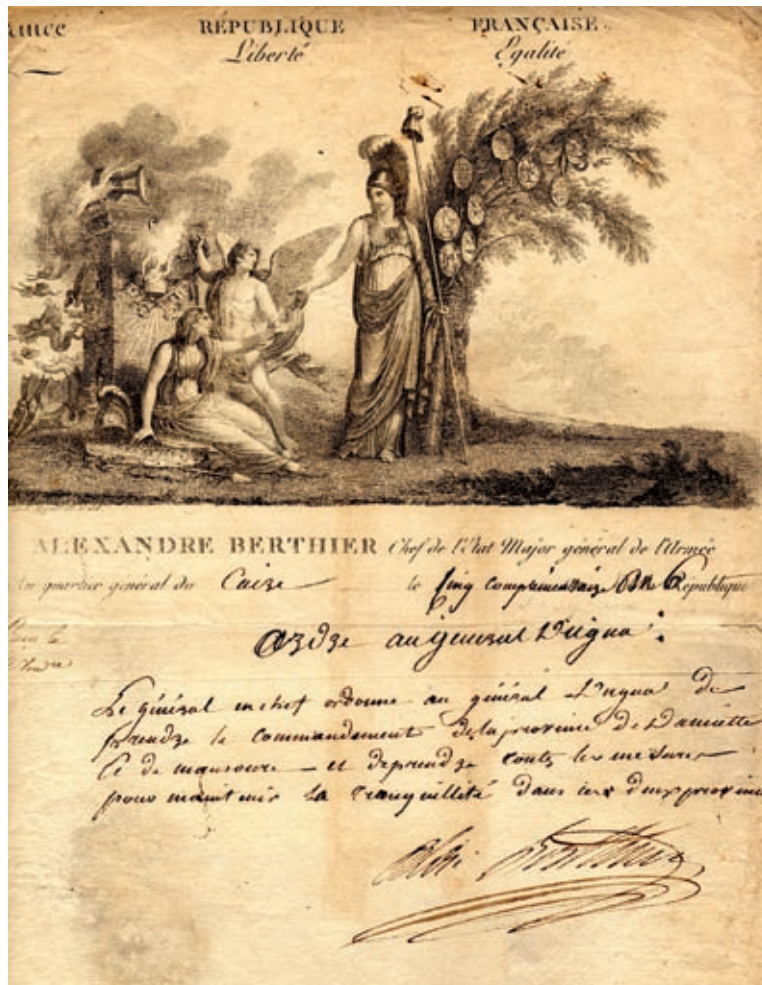 RÉPUBLIQUE FRANÇAISE.
Liberté Egalité
ALEXANDRE BERTHIER Chef de l'Etat Major général de l'Armée
au quartier général du Caire le cinq complémentaire An 6 République
Ordre au général Dugua.
Le général en chef ordonne au général Dugua de
prendre le commandement de la province de Damiette
et de mansoure et de prendre toutes les mesures
pour maintenir la tranquillité dans ces deux provin
Alex Berthier